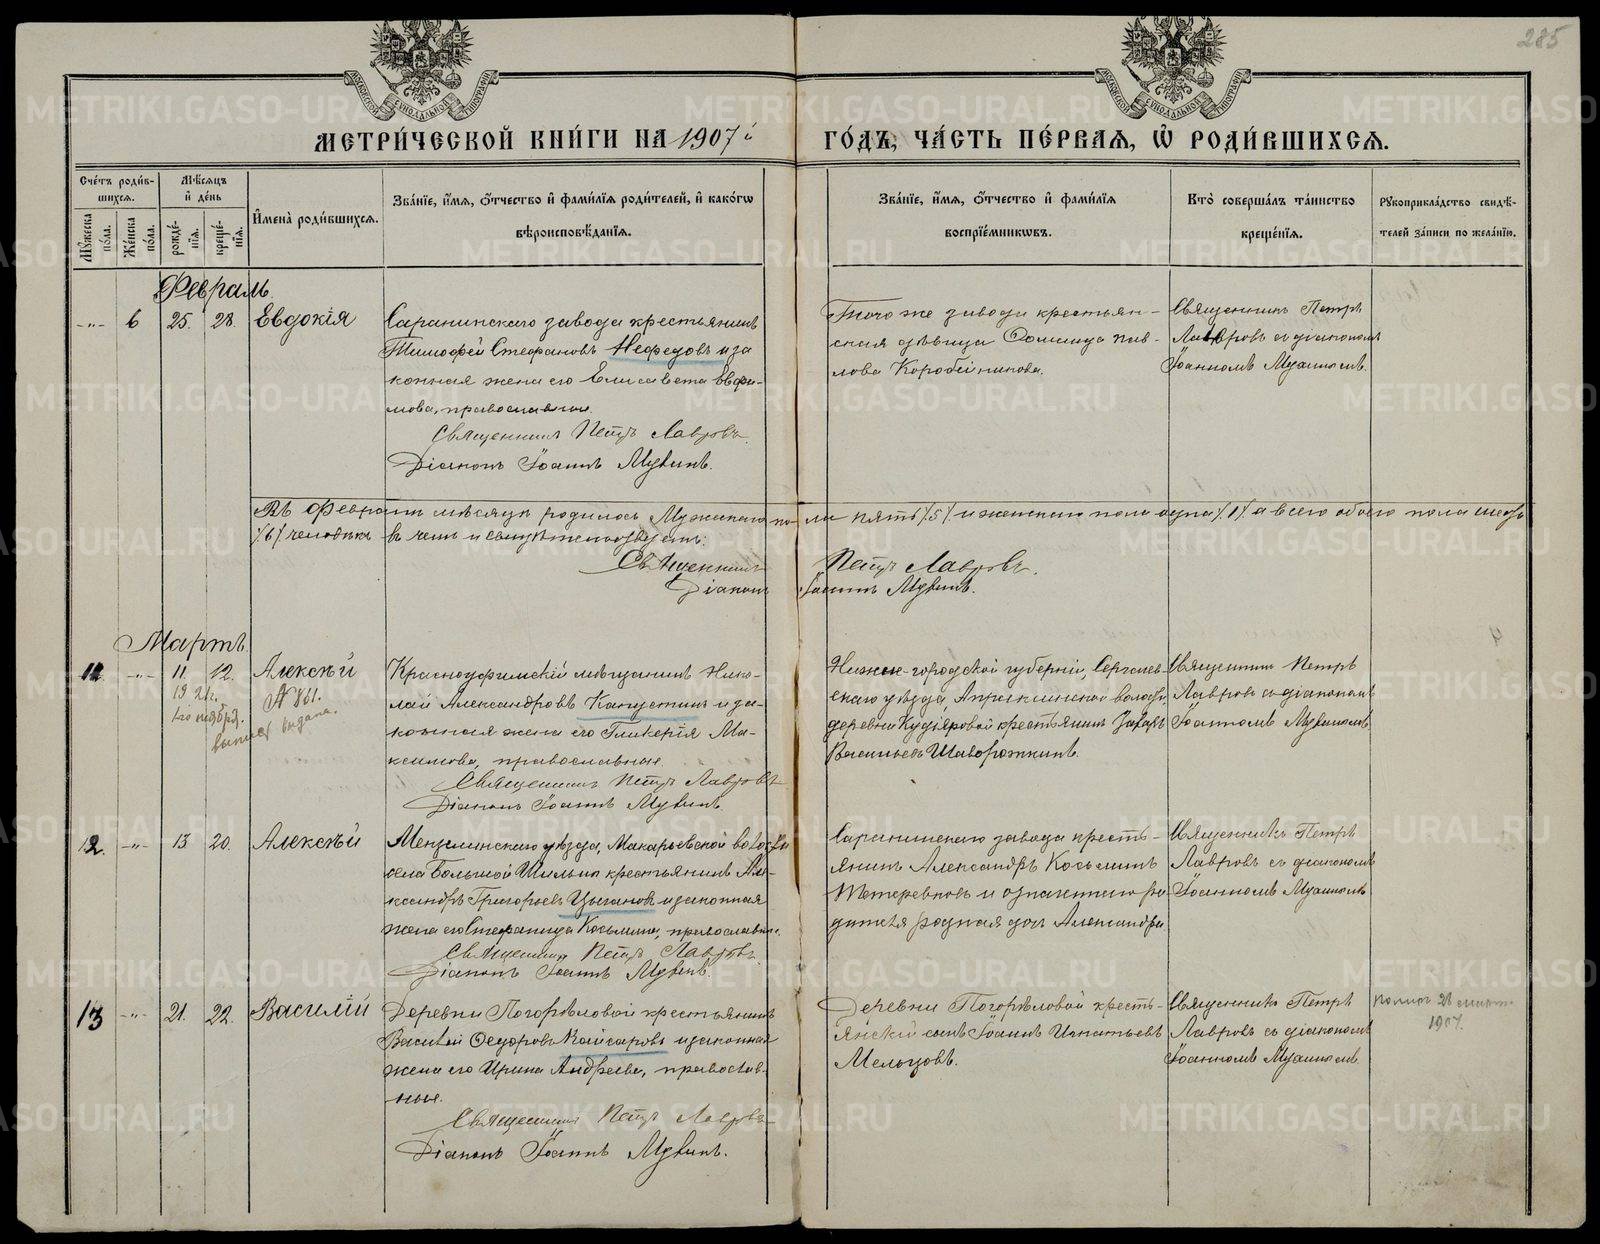 285
МЕТРИЧЕСКОЙ КНИГИ НА 1907й ГОДЪ, ЧАСТЬ ПЕРВАЯ, Ѡ РОДИВШИХСЯ.
Счетъ родив-
шихся.
Мѣсяцъ
и день
Имена родившихся.
Званіе, имя, отчество и фамилія родителей, и какого
вѣроисповѣданія.
Званіе, имя, отчество и фамилія
воспріемниковъ.
Кто совершалъ таинство
крещенія.
Рукоприкладство свидѣ-
телей записи по желанію.
Мужеска
пола.
Женска
пола.
рожде-
нія.
креще-
нія.
Февраль
-"- 6 25. 28. Евдокія
Саранинскаго завода крестьянинъ
Тимофей Стефановъ Нефедовъ и за
конная жена его Елисавета Евфи-
мова, православные.
Священникъ Петръ Лавровъ.
Діаконъ Іоаннъ Мувинъ.
Того же завода крестьян-
ская дѣвица Соломида Пав-
лова Коробейникова.
Священникъ Петръ
Лавровъ съ діакономъ
Іоанномъ
Въ Февралѣ мѣсяцѣ родилось Мужскаго по-ла пять /5/ и женскаго пола одна /1/ а всего обоего пола шесть
/6/ человѣкъ въ чемъ и свидѣтельствуемъ:
Священникъ Петръ Лавровъ.
Діаконъ Іоаннъ Мувинъ.
Мартъ
11. -"- 11. 12. Алексѣй
1921г.
1го ноября.
№ 861.
выпись выдана.
Красноуфимскій мѣщанинъ Нико-
лай Александровъ Капустинъ и за-
конная жена его Гликерія Ма-
ксимова, православные.
Священникъ Петръ Лавровъ
Діаконъ Іоаннъ Мувинъ.
Нижне-городской губерніи, Сергачев-
скаго уѣзда, волости,
деревни крестьянинъ Захаръ
Васильевъ
Священникъ Петръ
Лавровъ съ діакономъ
Іоанномъ
12. -"- 13 20. Алексѣй
Мензелинскаго уѣзда, Макарьевской волости
села Большой Шильны крестьянинъ Але-
ксандръ Григорьевъ Цыгановъ и законная
жена его Стефанида Косьмина, православные.
Священникъ Петръ Лавровъ.
Діаконъ Іоаннъ Мувинъ.
Саранинскаго завода кресть-
янинъ Александръ Косьминъ
Тетеревковъ и означеннаго ро-
дителя родная дочь Александра
Священникъ Петръ
Лавровъ съ діакономъ
Іоанномъ
13 -"- 21. 22. Василій
Деревни Погорѣловой крестьянинъ
Василій Ѳедоровъ Кайсаровъ и законная
жена его Ирина Андреева, православ-
ные.
Священникъ Петръ Лавровъ
Діаконъ Іоаннъ Мувинъ.
Деревни Погорѣловой кресть-
янскій сынъ Іоаннъ Игнатьевъ
Мельцовъ.
Священникъ Петръ
Лавровъ съ діакономъ
Іоанномъ
марта
1907.
METRIKI.GASO-URAL.RU